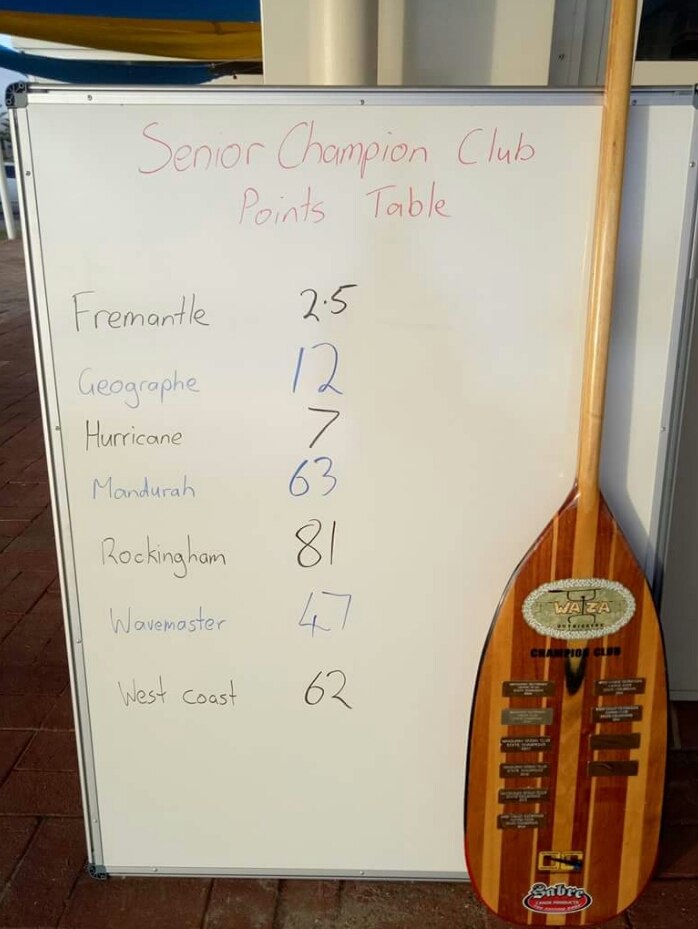 Senior Champion Club
Points Table
Fremantle 2.5
Geographe 12
Hurricane 7
Mandurah 63
Rockingham 81
Wavemaster 47
West Coast 62
WAZA
OUTRIGGERS
CHAMPION CLUB
Sabre
CANOE PRODUCTS